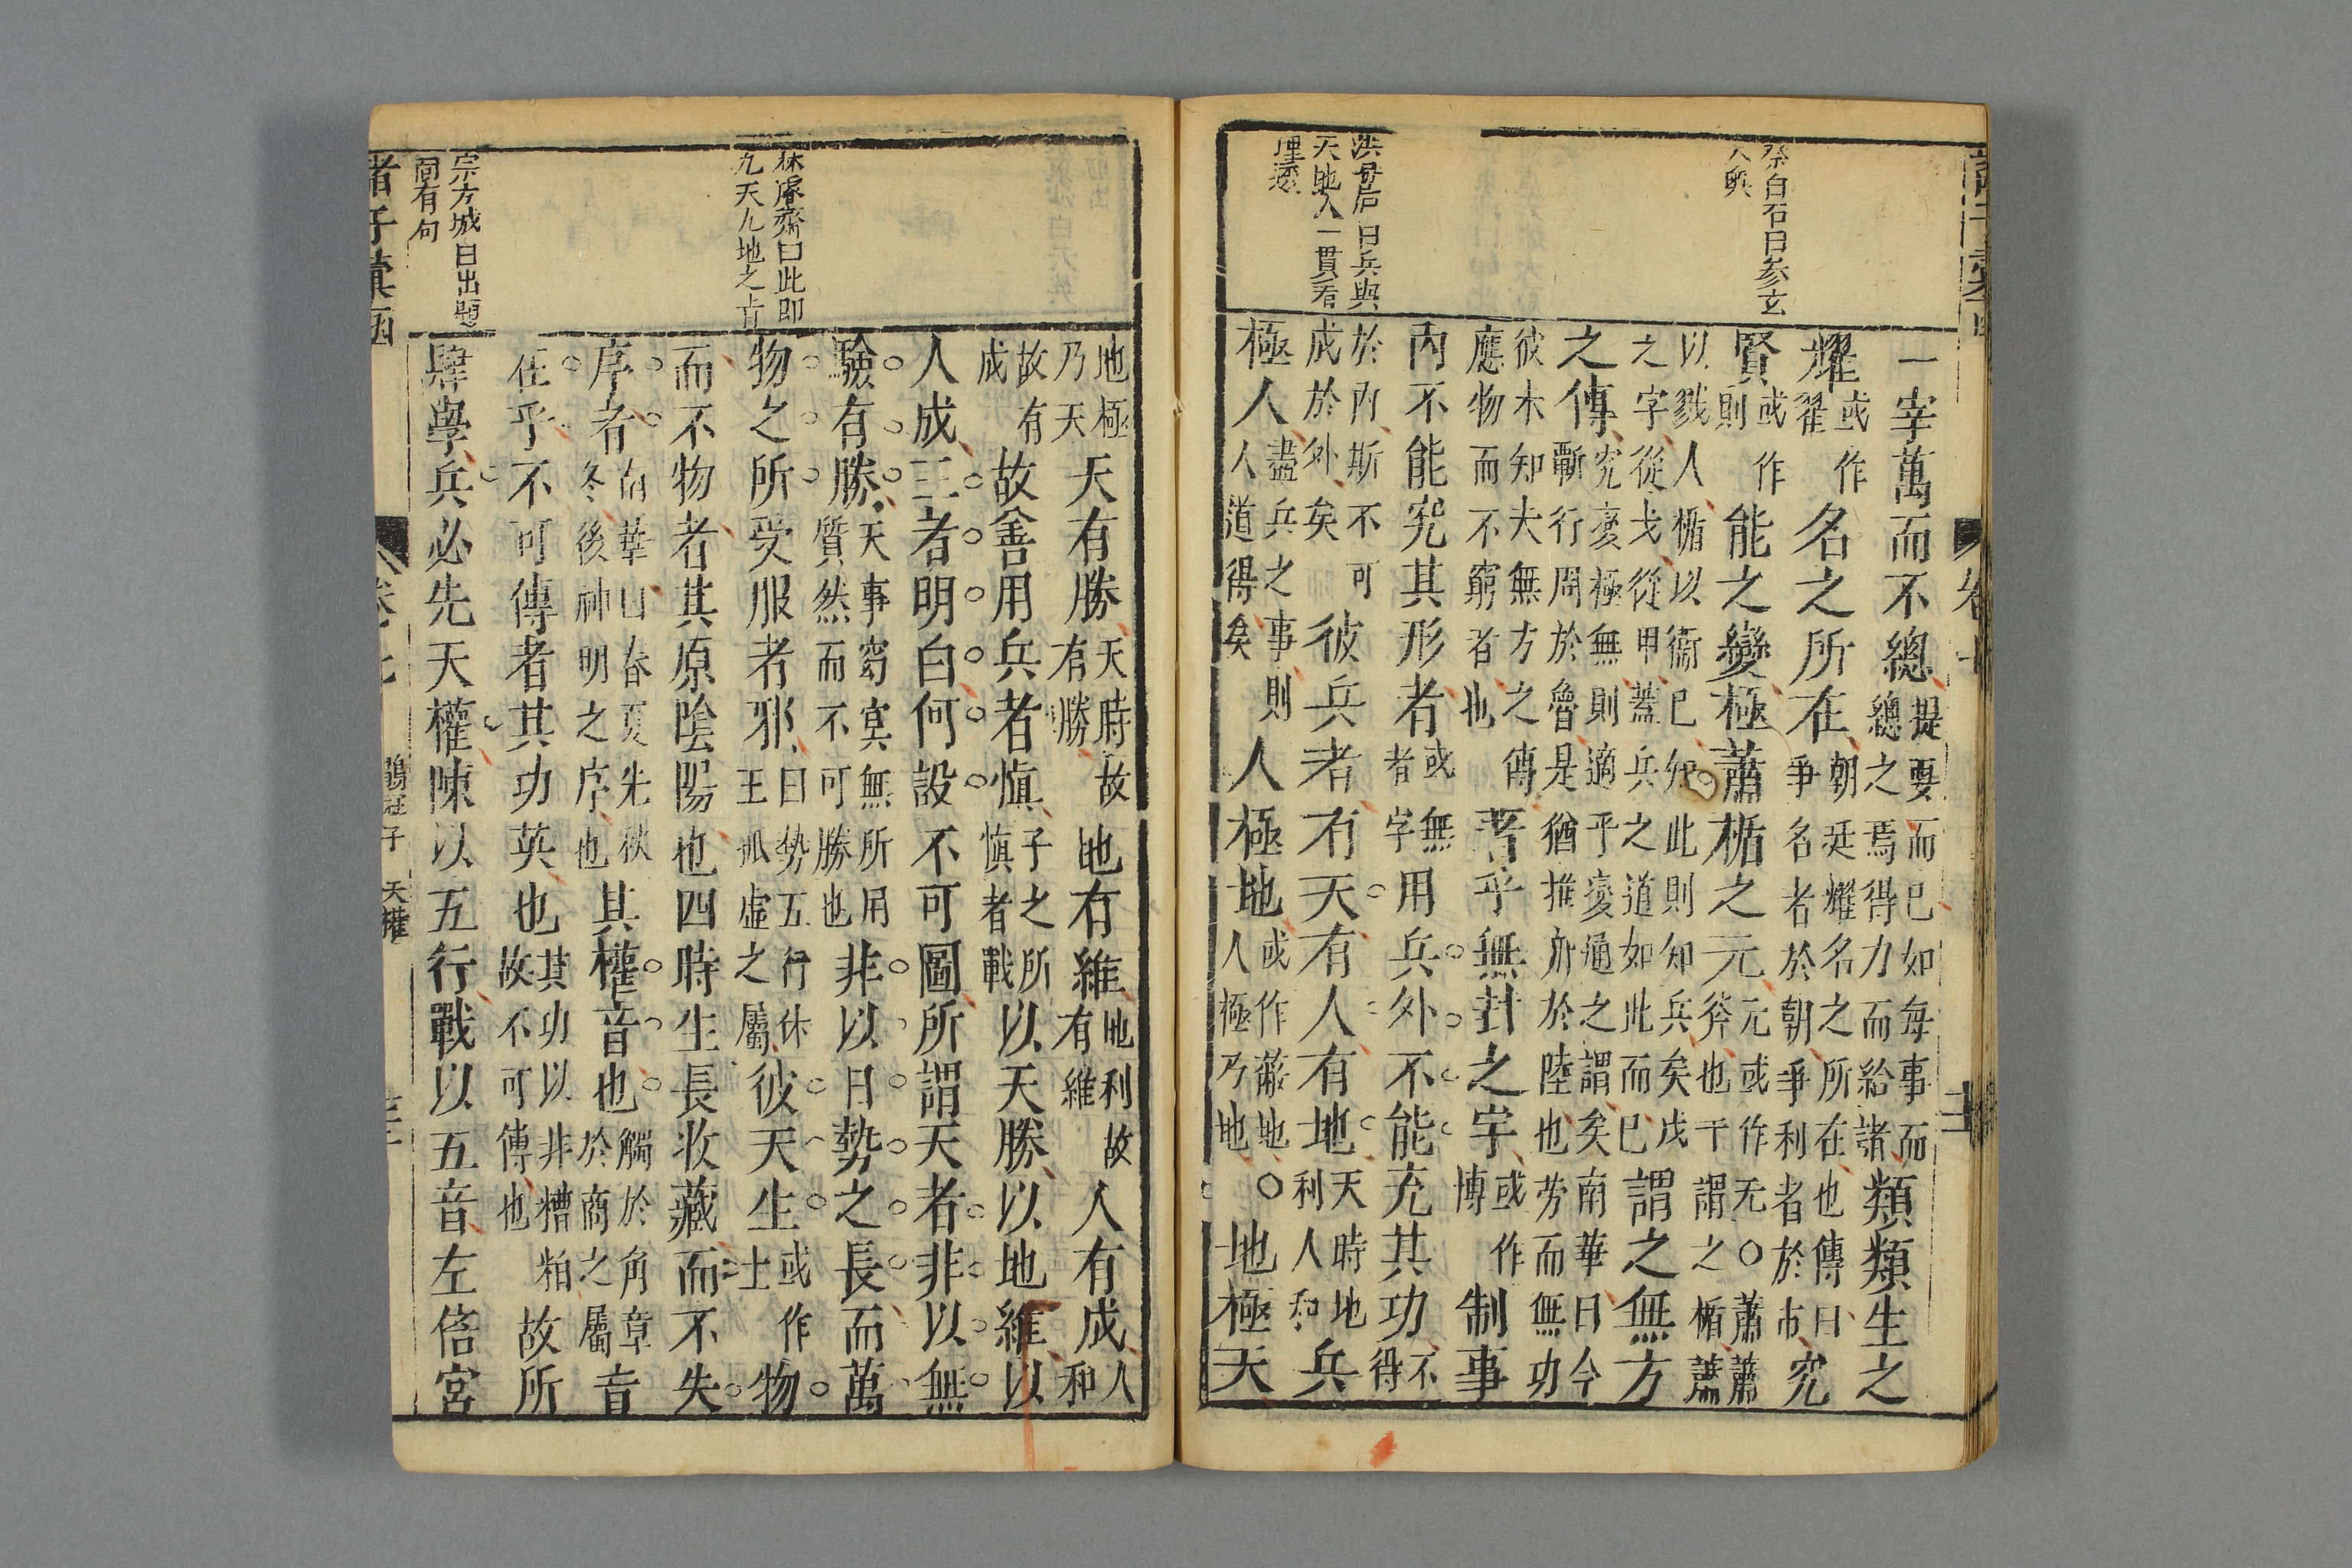 蔡白石曰參玄
入無
曰兵與
天地人一貫看
理透
一宰萬而不總提要而已如每事而總之焉得力而給諸類類生之
耀或作翟名之所在朝廷耀名之所在也傳曰爭名者於朝爭利者於市究
賢或作則能之變極蕭楯之元元或作无○蕭蕭斧也干謂之楯蕭
以戮人楯以衞已知此則知兵矣戊之字從戈從甲蓋兵之道如此而已謂之無方
之傳究變極無則適乎變通之謂矣南華曰今蘄行周於魯是猶推舟於陸也勞而無功
彼未知夫無方之傳應物而不窮者也著乎無封之宇或作博制事
內不能究其形者或無者字用兵外不能充其功不得
於內斯不可成於外矣彼兵者有天有人有地天時地利人和兵
極人盡兵之事則人道得矣人極地或作蔽地○人極乃地地極天
諸子彙函
卷七
鶡冠子
天權
林盧齋曰此即
九天九地之旨
宗方城曰出題
間有句
地極乃天天有勝天時故有勝地有維地利故有維人有成人和
故有成故善用兵者慎子之所慎者戰以天勝以地維以
人成三者明白何設不可圖所謂天者非以無
驗有勝天事窈冥無所用質然而不可勝也非以日勢之長而萬
物之所受服者邪曰勢五行休王孤虛之屬彼天生或作士物
而不物者其原陰陽也四時生長收藏而不失
序者南華曰春夏先秋冬後神明之序也其權音也觸於角章於商之屬音
在乎不可傳者其功英也其功以非糟粕故不可傳也故所
肆學兵必先天權陳以五行戰以五音左倍宮